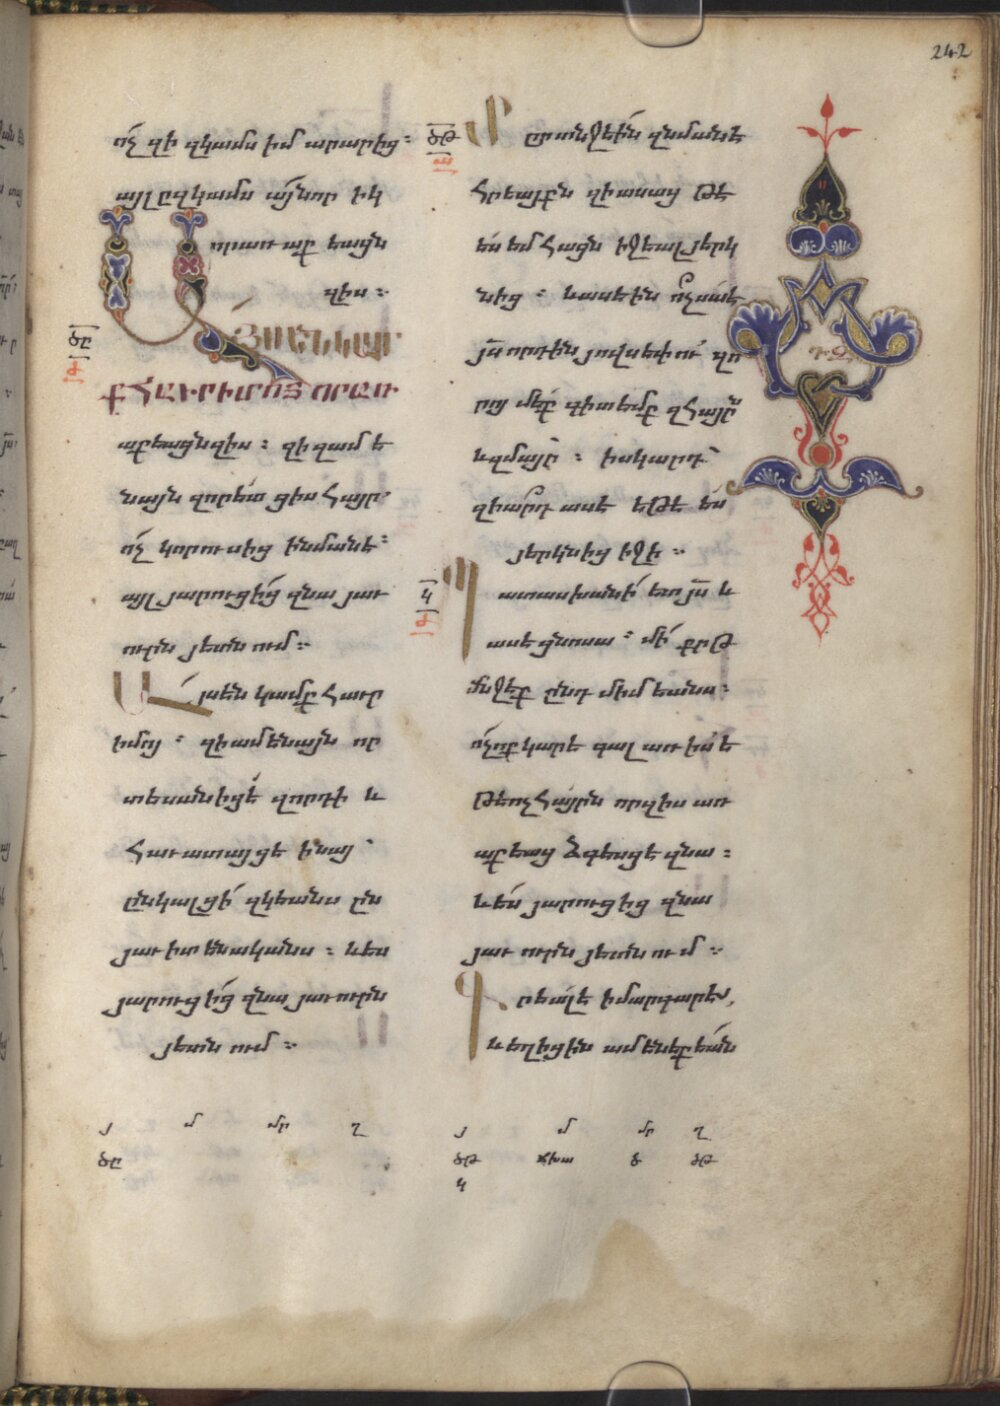 242
ոչ զի զկամս իմ արարից ։
այլ ըզկամս այնոր իկ
որառաքեացն
զիս ։
ծը
Այս են կամ
ք հաւր իմոյ որ առ
աքեացն զիս ։ զի զամե
նայն զոր ետ ցիս հայր՝
ոչ կորուսից ինմանե ։
այլ յարուցից զնա յաւ
ուրն յետնում ։
Այս են կամք հաւր
իմոյ ։ զի ամենայն որ
տեսանիցէ զորդի և
հաւատայցե ի նա՝
ընկալցի զկեանս ըն
յաւիտենականս ։ և ես
յարուցից զնա յաւուրն
յետնում ։
ծթ
Տրտնջեին զնմանե
հրեայքն զի ասաց թե
ես եմ հացն իջեալ յերկ
նից ։ և ասեին ոչ սա է
յս որդին յովսեփու զո
րոյ մեք գիտեմք զհայրն
և զմայր ։ իսկ արդ՝
զիարդ ասե եթե ես
յերկնից իջի ։
կ
Պատասխանի ետ յս և
ասե ցնոսա ։ մի քրթ
մնջեք ընդ միմեանս ։
ոչ ոք կարե գալ առ իս ե
թե ոչ հայրն որ զիս առ
աքեաց ձգեսցե զնա ։
և ես յարուցից զնա
յաւուրն յետնում ։
Գրեալ է ի մարգարես,
և եղիցին ամենեքեան
յ մ մր ղ
ծը
յ մ մր ղ
ծթ ճխա ծ ծթ
կ